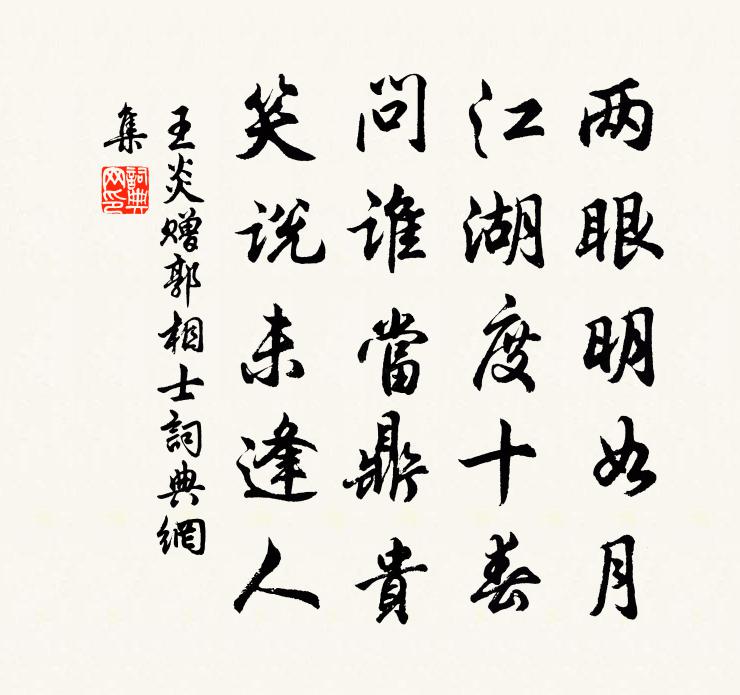 两眼明如月
江湖度十春
問谁當鼎貴
笑说未逢人
王炎赠郭相士詞典網
集
詞典
网印